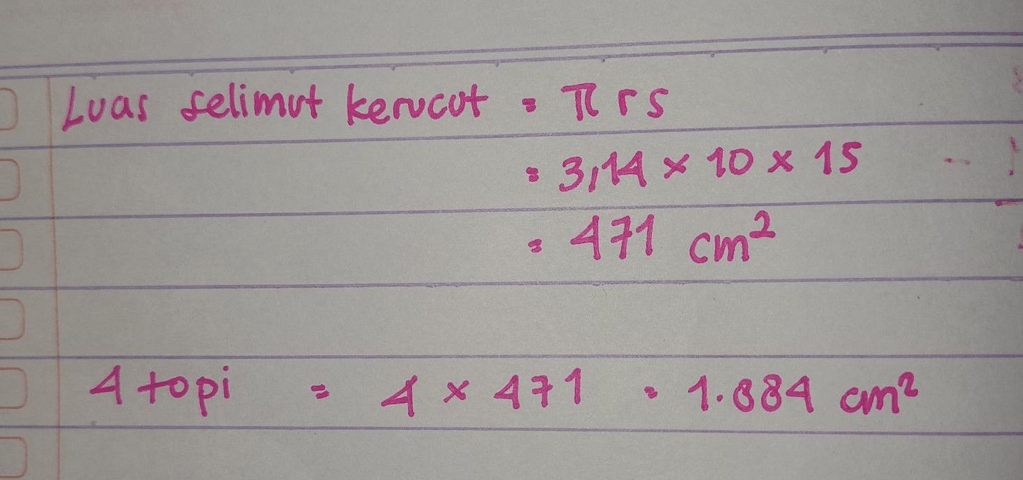 Luas selimut kerucut = π r s
= 3,14 × 10 × 15
= 471 cm²
4 topi = 4 × 471 = 1.884 cm²